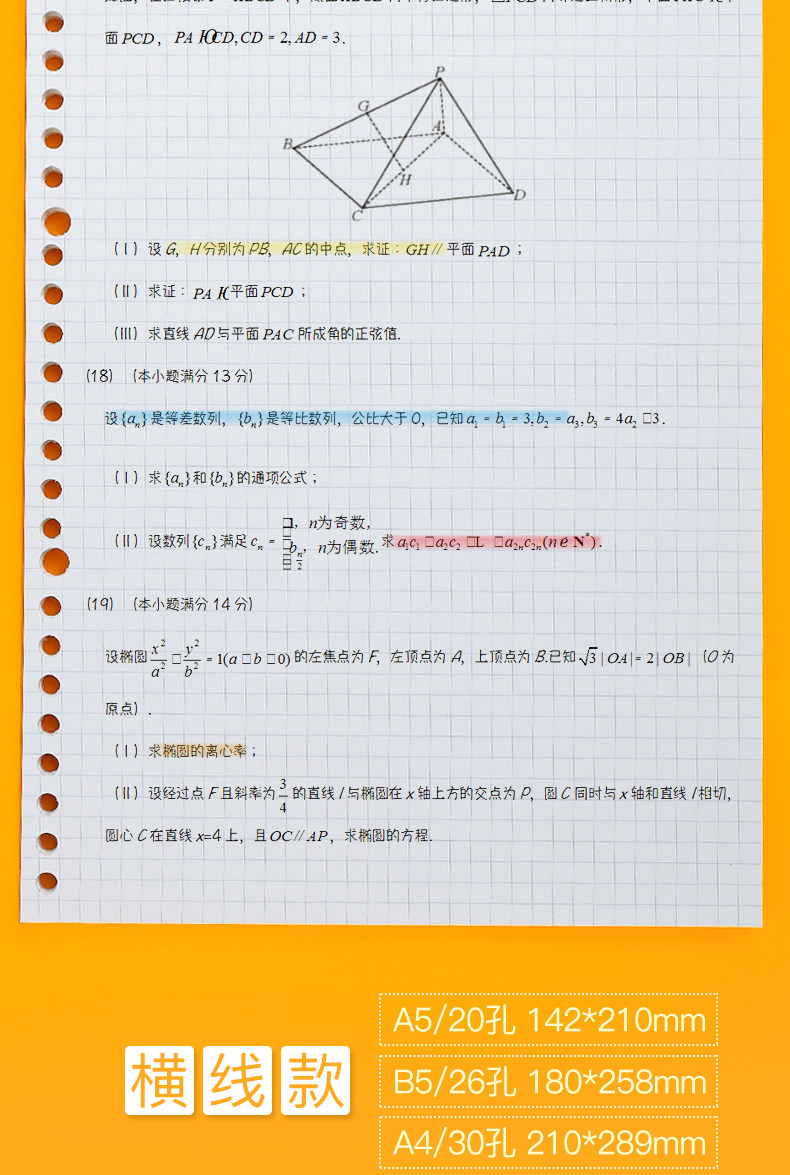 面PCD，PA ⱵCD,CD = 2, AD = 3.
P
G
A
B
H
D
C
(Ⅰ) 设G，H分别为PB，AC的中点，求证：GH∥平面PAD；
(Ⅱ) 求证：PA 平面PCD；
(Ⅲ) 求直线AD与平面PAC所成角的正弦值.
(18) (本小题满分13分)
设{aₙ}是等差数列，{bₙ}是等比数列，公比大于0，已知a₁ = b₁ = 3, b₂ = a₃, b₃ = 4a₂ □3.
(Ⅰ) 求{aₙ}和{bₙ}的通项公式；
(Ⅱ) 设数列{cₙ}满足cₙ = □1，n为奇数， b_{n/2}，n为偶数. 求a₁c₁ □a₂c₂ □L □a₂ₙc₂ₙ(n é N*).
(19) (本小题满分14分)
设椭圆x²/a² □ y²/b² = 1(a □ b □ 0)的左焦点为F，左顶点为A，上顶点为B.已知√3 | OA |= 2 | OB | (O为
原点).
(Ⅰ) 求椭圆的离心率；
(Ⅱ) 设经过点F且斜率为3/4的直线l与椭圆在x轴上方的交点为P，圆C同时与x轴和直线l相切，
圆心C在直线x=4上，且OC∥AP，求椭圆的方程.
横线款
A5/20孔 142*210mm
B5/26孔 180*258mm
A4/30孔 210*289mm